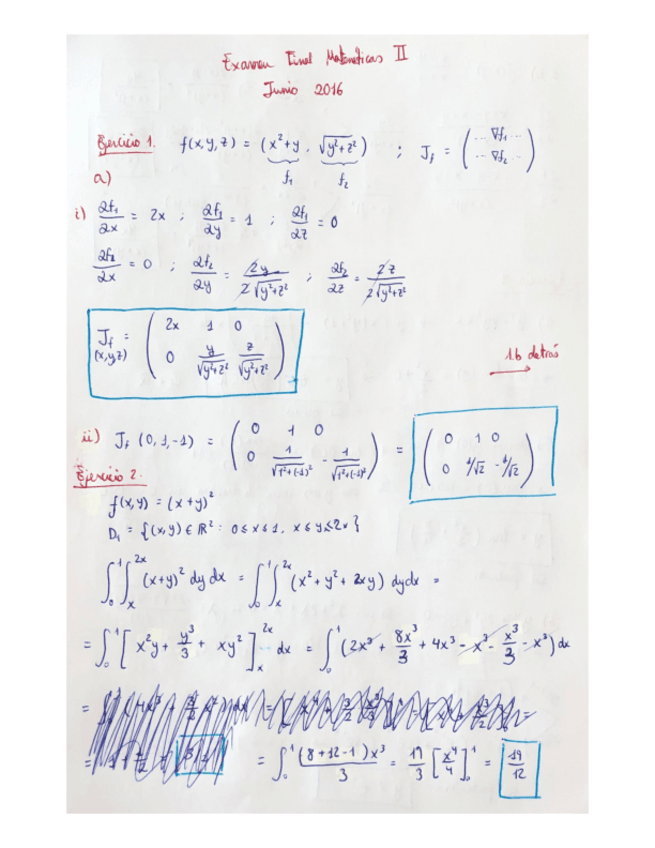 Examen Final Matemáticas II
Junio 2016
Ejercicio 1. f(x,y,z) = (x²+y , √(y²+z²)) ; J_f = (... ∇f₁ ... / ... ∇f₂ ...)
f₁ f₂
a)
i) ∂f₁/∂x = 2x ; ∂f₁/∂y = 1 ; ∂f₁/∂z = 0
∂f₂/∂x = 0 ; ∂f₂/∂y = 2y/(2√(y²+z²)) ; ∂f₂/∂z = 2z/(2√(y²+z²))
J_f (x,y,z) = (2x 1 0 / 0 y/√(y²+z²) z/√(y²+z²))
1.b detrás
ii) J_f (0,1,-1) = (0 1 0 / 0 1/√(1²+(-1)²) -1/√(1²+(-1)²)) = (0 1 0 / 0 1/√2 -1/√2)
Ejercicio 2.
f(x,y) = (x+y)²
D₁ = {(x,y) ∈ ℝ² : 0≤x≤1, x≤y≤2x}
∫₀¹∫ₓ²ˣ (x+y)² dy dx = ∫₀¹∫ₓ²ˣ (x²+y²+2xy) dydx =
= ∫₀¹ [x²y + y³/3 + xy²]ₓ²ˣ dx = ∫₀¹ (2x³ + 8x³/3 + 4x³ - x³ - x³/3 - x³) dx
= ∫₀¹ (8+12-1)x³/3 = 19/3 [x⁴/4]₀¹ = 19/12